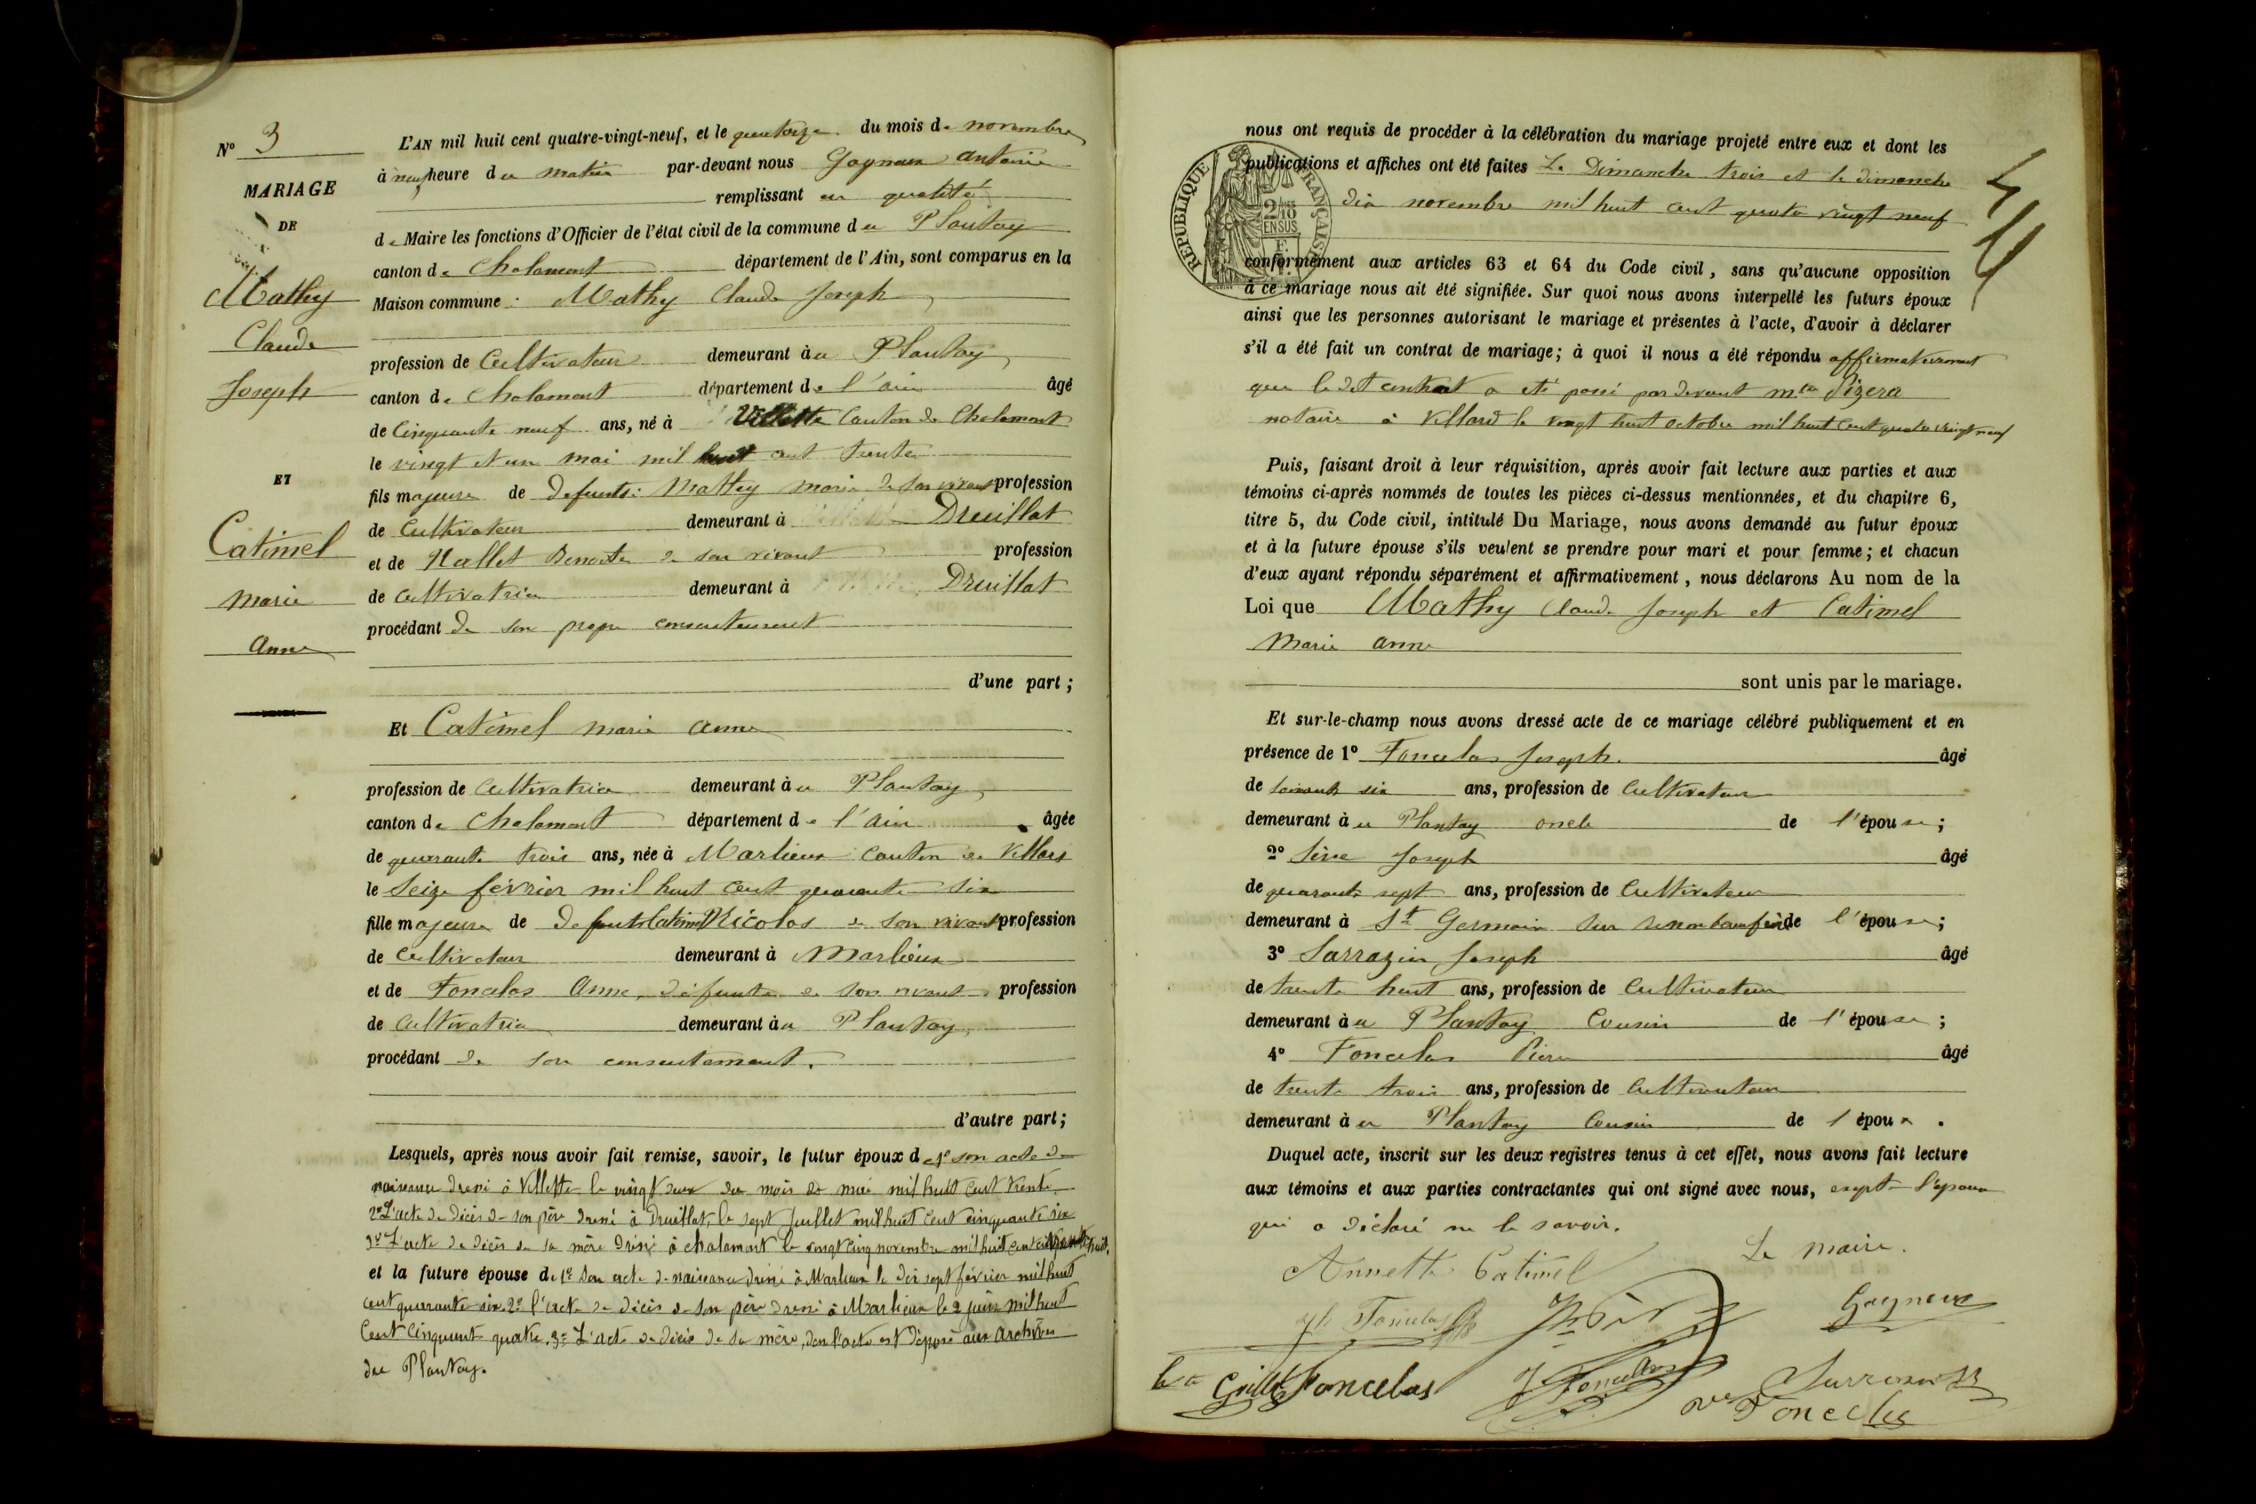 N° 3
MARIAGE
DE
Mathy
Claude
Joseph
ET
Catimel
marie
anne
L'AN mil huit cent quatre-vingt-neuf, et le quatorze du mois de novembre
à neuf heure du matin par-devant nous Gagneux antoine
remplissant en qualité
de Maire les fonctions d'Officier de l'état civil de la commune du Plantay
canton de Chalamont département de l'Ain, sont comparus en la
Maison commune : Mathy Claude Joseph
profession de Cultivateur demeurant à u Plantay
canton de Chalamont département de l'ain âgé
de Cinquante neuf ans, né à Villette Canton de Chalamont
le vingt et un mai mil huit cent trente
fils majeure de defunts: Mathy marie de son vivant profession
de Cultivateur demeurant à Druillat
et de Nallet Benoite de son vivant profession
de Cultivatrice demeurant à Druillat
procédant de son propre consentement
d'une part ;
Et Catimel marie anne
profession de Cultivatrice demeurant à u Plantay
canton de Chalamont département de l'ain âgée
de quarante trois ans, née à Marlieux canton de Villars
le Seize février mil huit cent quarante six
fille majeure de defunts Catimel Nicolas de son vivant profession
de Cultivateur demeurant à Marlieux
et de Foncelas Anne, défunte de son vivant profession
de Cultivatrice demeurant à u Plantay
procédant de son consentement.
d'autre part ;
Lesquels, après nous avoir fait remise, savoir, le futur époux de 1° son acte de
naissance dressé à Villette le vingt deux du mois de mai mil huit cent trente
2° L'acte de décès de son père dressé à Druillat, le sept Juillet mil huit cent cinquante six
3° L'acte de décès de sa mère dressé à chalamont le vingt cinq novembre mil huit cent cinquante huit.
et la future épouse de 1° Son acte de naissance dressé à Marlieux le dix sept février mil huit
cent quarante six. 2° l'acte de décès de son père dressé à Marlieux le 2 juin mil huit
Cent Cinquante quatre. 3° L'acte de décès de sa mère, dont l'acte est déposé aux archives
du Plantay.
nous ont requis de procéder à la célébration du mariage projeté entre eux et dont les
publications et affiches ont été faites Le Dimanche trois et le dimanche
dix novembre mil huit cent quatre vingt neuf
RÉPUBLIQUE FRANÇAISE
2/10 EN SUS
conformément aux articles 63 et 64 du Code civil, sans qu'aucune opposition
à ce mariage nous ait été signifiée. Sur quoi nous avons interpellé les futurs époux
ainsi que les personnes autorisant le mariage et présentes à l'acte, d'avoir à déclarer
s'il a été fait un contrat de mariage ; à quoi il nous a été répondu affirmativement
que le dit contrat a été passé par devant mtre Pizera
notaire à Villard le vingt huit octobre mil huit cent quatre vingt neuf
Puis, faisant droit à leur réquisition, après avoir fait lecture aux parties et aux
témoins ci-après nommés de toutes les pièces ci-dessus mentionnées, et du chapitre 6,
titre 5, du Code civil, intitulé Du Mariage, nous avons demandé au futur époux
et à la future épouse s'ils veulent se prendre pour mari et pour femme ; et chacun
d'eux ayant répondu séparément et affirmativement, nous déclarons Au nom de la
Loi que Mathy Claude Joseph et Catimel
Marie anne
sont unis par le mariage.
Et sur-le-champ nous avons dressé acte de ce mariage célébré publiquement et en
présence de 1° Foncelas Joseph. âgé
de soixante six ans, profession de Cultivateur
demeurant à u Plantay oncle de l'épouse ;
2° Sève Joseph âgé
de quarante sept ans, profession de Cultivateur
demeurant à St Germain sur renon beaufrère de l'épouse ;
3° Sarrazin Joseph âgé
de trente huit ans, profession de Cultivateur
demeurant à u Plantay Cousin de l'épouse ;
4° Foncelas Pierre âgé
de trente trois ans, profession de Cultivateur
demeurant à u Plantay Cousin de l'épou .
Duquel acte, inscrit sur les deux registres tenus à cet effet, nous avons fait lecture
aux témoins et aux parties contractantes qui ont signé avec nous, exepté l'époux
qui a déclaré ne le savoir.
Annette Catimel
Le maire.
Foncelas
Gagneux
Foncelas
Foncelas
Sarrazin